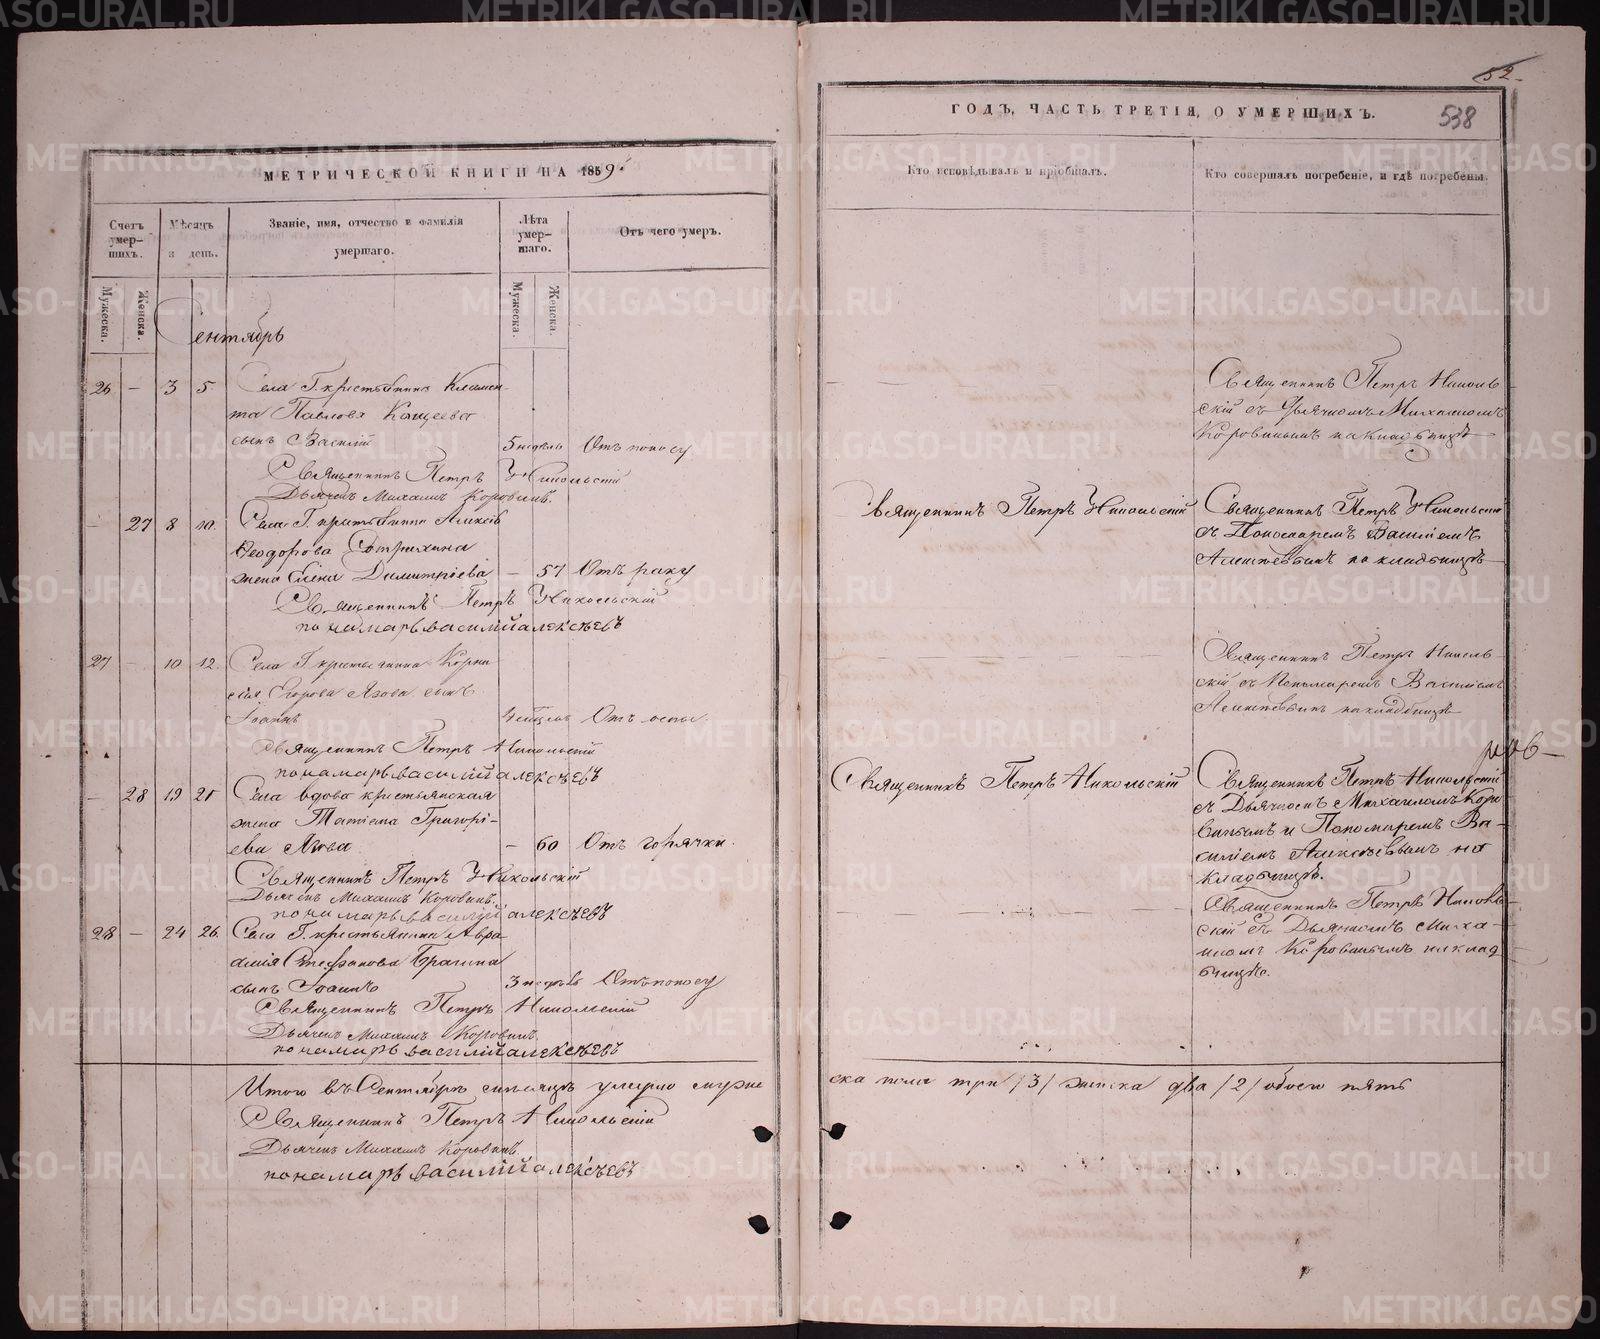 52
538
МЕТРИЧЕСКОЙ КНИГИ НА 1859
ГОДЪ, ЧАСТЬ ТРЕТІЯ, О УМЕРШИХЪ.
Счетъ умер-
шихъ.
Мѣсяцъ
и день.
Званіе, имя, отчество и фамилія
умершаго.
Лѣта
умер-
шаго.
Отъ чего умеръ.
Кто исповѣдывалъ и пріобщалъ.
Кто совершалъ погребеніе, и гдѣ погребены.
Мужеска.
Женска.
Мужеска.
Женска.
Сентябрь
26 - 3 5 Села Г. крестьянина Климен-
та Павлова Кащеева
сынъ Василій 5 недѣль Отъ поносу
Священникъ Петръ Николь-
скій съ Дьячкомъ Михаиломъ
Коровинымъ на кладбищѣ
Священникъ Петръ Никольскій
Дьячекъ Михаилъ Коровинъ.
- 27 8 10 Села Г. крестьянина Алексѣя
Ѳеодорова
жена Елена Димитріева - 57 Отъ раку
Священникъ Петръ Никольскій
Священникъ Петръ Никольскій
съ Пономаремъ Василіемъ
Алексѣевымъ на кладбищѣ
Священникъ Петръ Никольскій
понамарь василий алексѣевъ
27 - 10 12 Села Г. крестьянина Корни-
лія Егорова Язова сынъ
Іоаннъ Отъ оспы
Священникъ Петръ Николь-
скій съ Пономаремъ Василіемъ
Алексѣевымъ на кладбищѣ
Священникъ Петръ Никольскій
понамарь василий алексѣевъ
- 28 19 21 Села вдова крестьянская
жена Татіана Григорі-
ева Язова - 60 Отъ горячки.
Священникъ Петръ Никольскій
Священникъ Петръ Никольскій
съ Дьячкомъ Михаиломъ Коро-
винымъ и Пономаремъ Ва-
силіемъ Алексѣевымъ на
кладбищѣ.
Священникъ Петръ Никольскій
Дьячекъ Михаилъ Коровинъ.
понамарь василий алексѣевъ
28 - 24 26 Села Г. крестьянина Авра-
амія Стефанова Брагина
сынъ Іоаннъ 3 недѣль Отъ поносу
Священникъ Петръ Николь-
скій съ Дьячкомъ Миха-
иломъ Коровинымъ на клад-
бищѣ.
Священникъ Петръ Никольскій
Дьячекъ Михаилъ Коровинъ.
понамарь василий алексѣевъ
Итого въ Сентябрѣ мѣсяцѣ умерло муже-
ска пола три /3/ женска два /2/ обоего пять
Священникъ Петръ Никольскій
Дьячекъ Михаилъ Коровинъ
понамарь василий алексѣевъ
METRIKI.GASO-URAL.RU